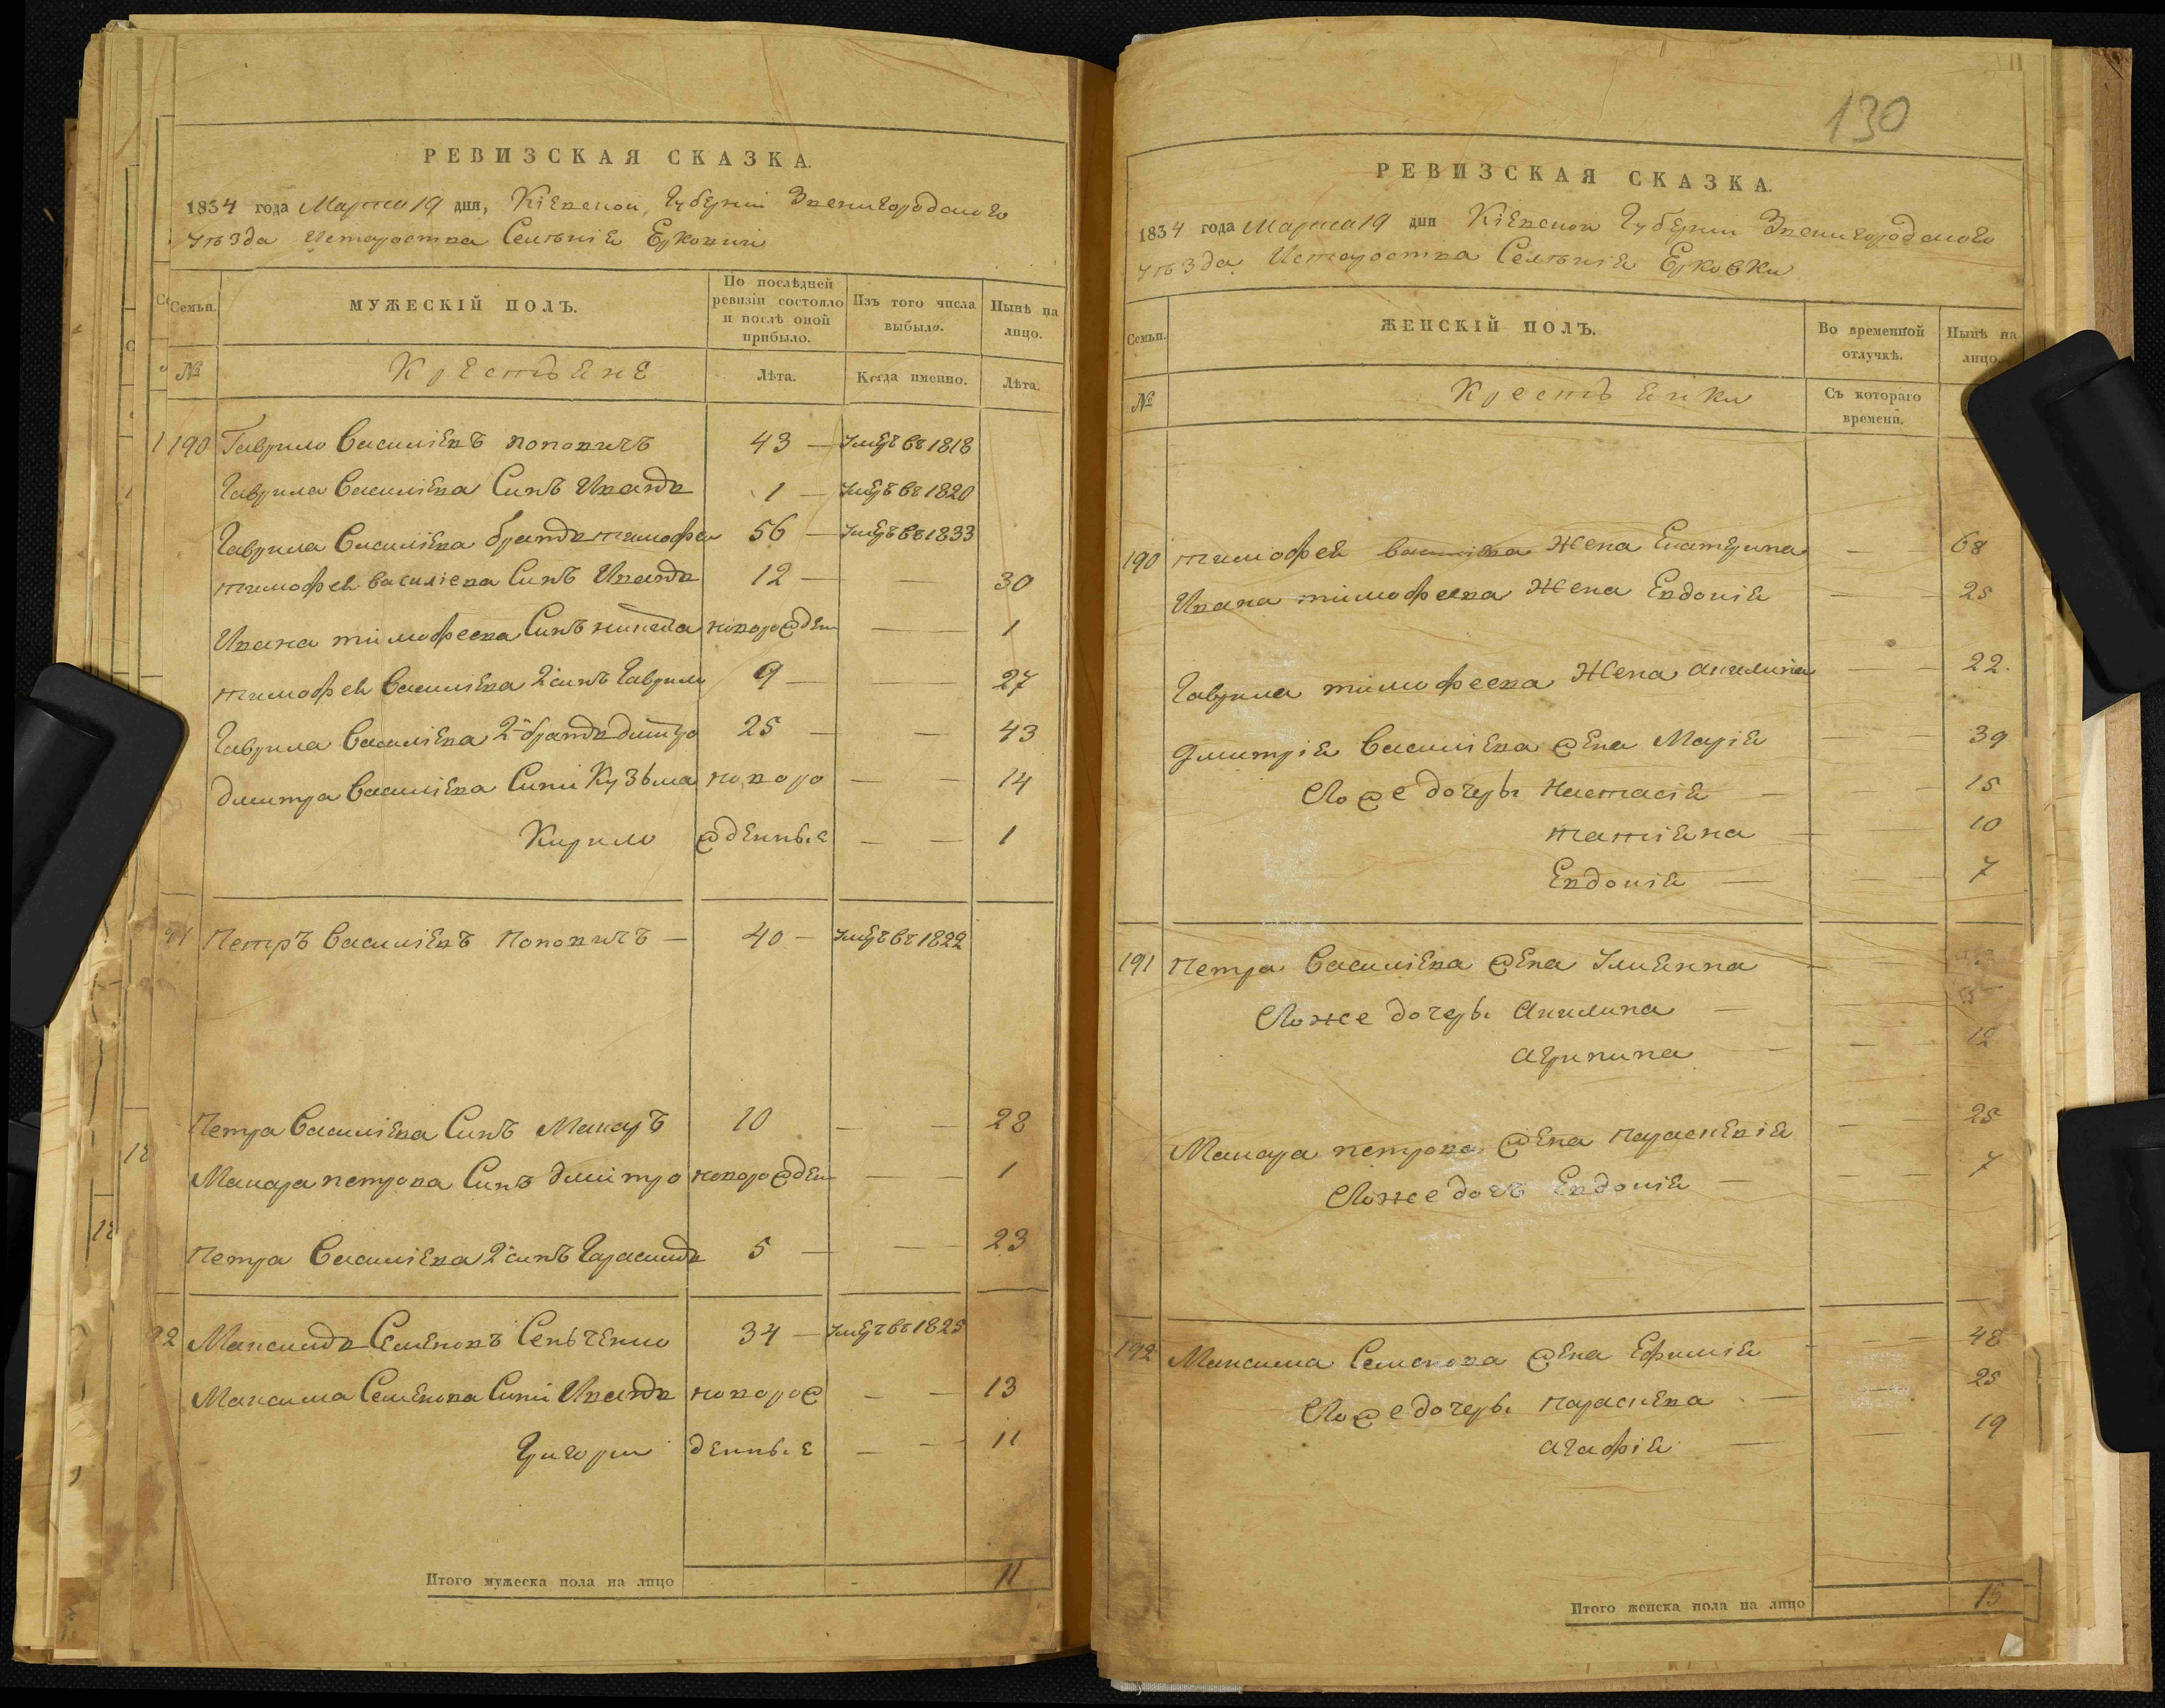 РЕВИЗСКАЯ СКАЗКА.
1834 года Марта 19 дня, Кіевской Губерніи Звенигородского
уѣзда Староства Селѣнія Ерковки
Семьи.
МУЖЕСКІЙ ПОЛЪ.
По послѣдней ревизіи состояло и послѣ оной прибыло.
Изъ того числа выбыло.
Нынѣ на лицо.
№
Крестьяне
Лѣта.
Когда именно.
Лѣта.
190 Гаврило Василіевъ Поповичъ 43 — Умеръ въ 1818
Гаврила Василіева Синъ Иванъ 1 — Умеръ въ 1820
Гаврила Василіева братъ тимофей 56 — Умеръ въ 1833
тимофея василіева Синъ Иванъ 12 — — 30
Ивана тимофеева Синъ новорожден — — 1
тимофея Василіева 2 синъ Гаврило 9 — — 27
Гаврила Василіева 2й братъ дмитро 25 — — 43
дмитра Василіева Сини Кузьма новоро — — 14
Кирило жденные — — 1
91 Петръ Василіевъ Поповичъ — 40 — Умеръ въ 1822
Петра Василіева Синъ Макаръ 10 — — 28
Макара петрова Синъ дмитро новорожден — — 1
Петра Василіева 2 синъ Гарасимъ 5 — — 23
92 Максимъ Семеновъ Сеньченко 34 — Умеръ въ 1825
Максима Семенова Сини Иванъ новорож — — 13
Григори денные — — 11
Итого мужеска пола на лицо 11
130
РЕВИЗСКАЯ СКАЗКА.
1834 года Марта 19 дня Кіевской Губерніи Звенигородского
уѣзда Староства Селѣнія Ерковки
Семьи.
ЖЕНСКІЙ ПОЛЪ.
Во временной отлучкѣ.
Нынѣ на лицо.
№
Крестьянки
Съ котораго времени.
190 тимофея Василіева Жена Екатерина — 68
Ивана тимофеева Жена Евдокія — — 25
Гаврила тимофеева Жена Акилина — — 22.
Дмитрія Василіева жена Марія — — 39
Его же дочерьи Настасія — — 15
татіяна — — 10
Евдокія — — 7
191 Петра Василіева жена Улиянна —
Его же дочерьи Акилина —
Агрипина — — 12
Макара петрова жена параскевія — — 25
Его же дочь Евдокія — — 7
192 Максима Семенова жена Ефимія — — 48
Его же дочерьи параскева — — 25
Агафія — — 19
Итого женска пола на лицо 15